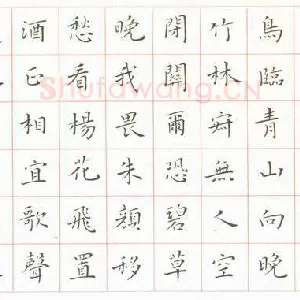 鳥臨青山向晚
竹林寂無人空
閉關爾恐碧草
晚我畏朱顏移
愁看楊花飛置
酒正相宜歌聲
Shufawang.CN